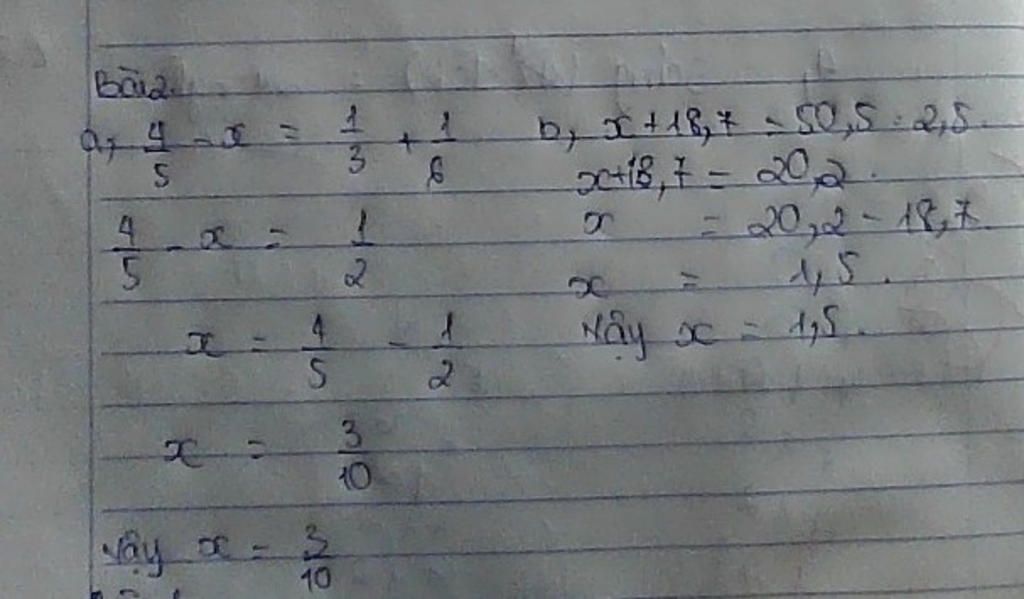 Bài 2
a, 4/5 - x = 1/3 + 1/6
4/5 - x = 1/2
x = 4/5 - 1/2
x = 3/10
Vậy x = 3/10
b, x + 18,7 = 50,5 : 2,5.
x + 18,7 = 20,2.
x = 20,2 - 18,7.
x = 1,5.
Vậy x = 1,5.